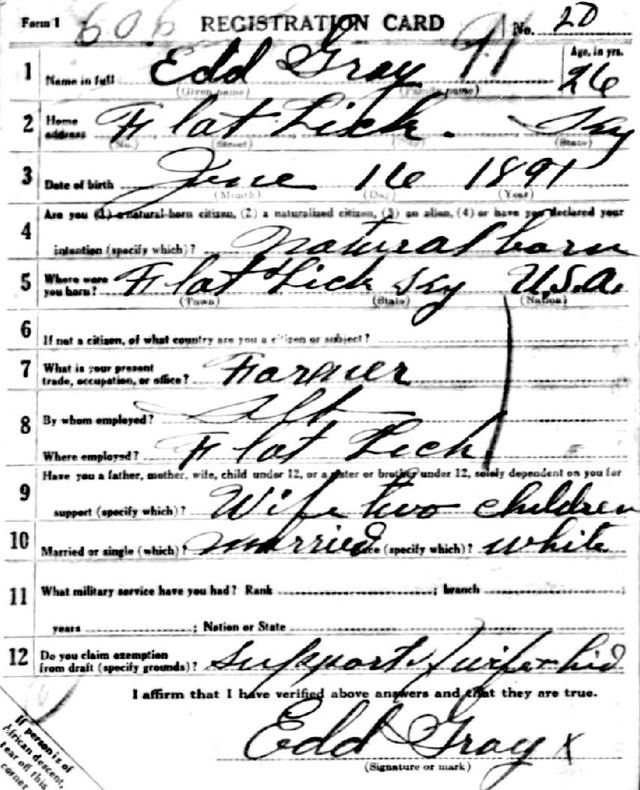 Form 1 606 REGISTRATION CARD 91 No. 20
1 Name in full Edd Gray Age, in yrs. 26
(Given name) (Family name)
2 Home address Flat Lick. Ky
(No.) (Street) (State)
3 Date of birth June 16 1891
(Month) (Day) (Year)
4 Are you (1) a natural-born citizen, (2) a naturalized citizen, (3) an alien, (4) or have you declared your
intention (specify which)? natural born
5 Where were you born? Flat Lick Ky U.S.A.
(Town) (State) (Nation)
6 If not a citizen, of what country are you a citizen or subject?
7 What is your present trade, occupation, or office? Farmer
8 By whom employed? Self
Where employed? Flat Lick
9 Have you a father, mother, wife, child under 12, or a sister or brother under 12, solely dependent on you for
support (specify which)? Wife two children
10 Married or single (which)? married Race (specify which)? white
11 What military service have you had? Rank ; branch
years ; Nation or State
12 Do you claim exemption from draft (specify grounds)? support wife +
I affirm that I have verified above answers and that they are true.
Edd Gray x
(Signature or mark)
If person is of
African descent,
tear off this
corner